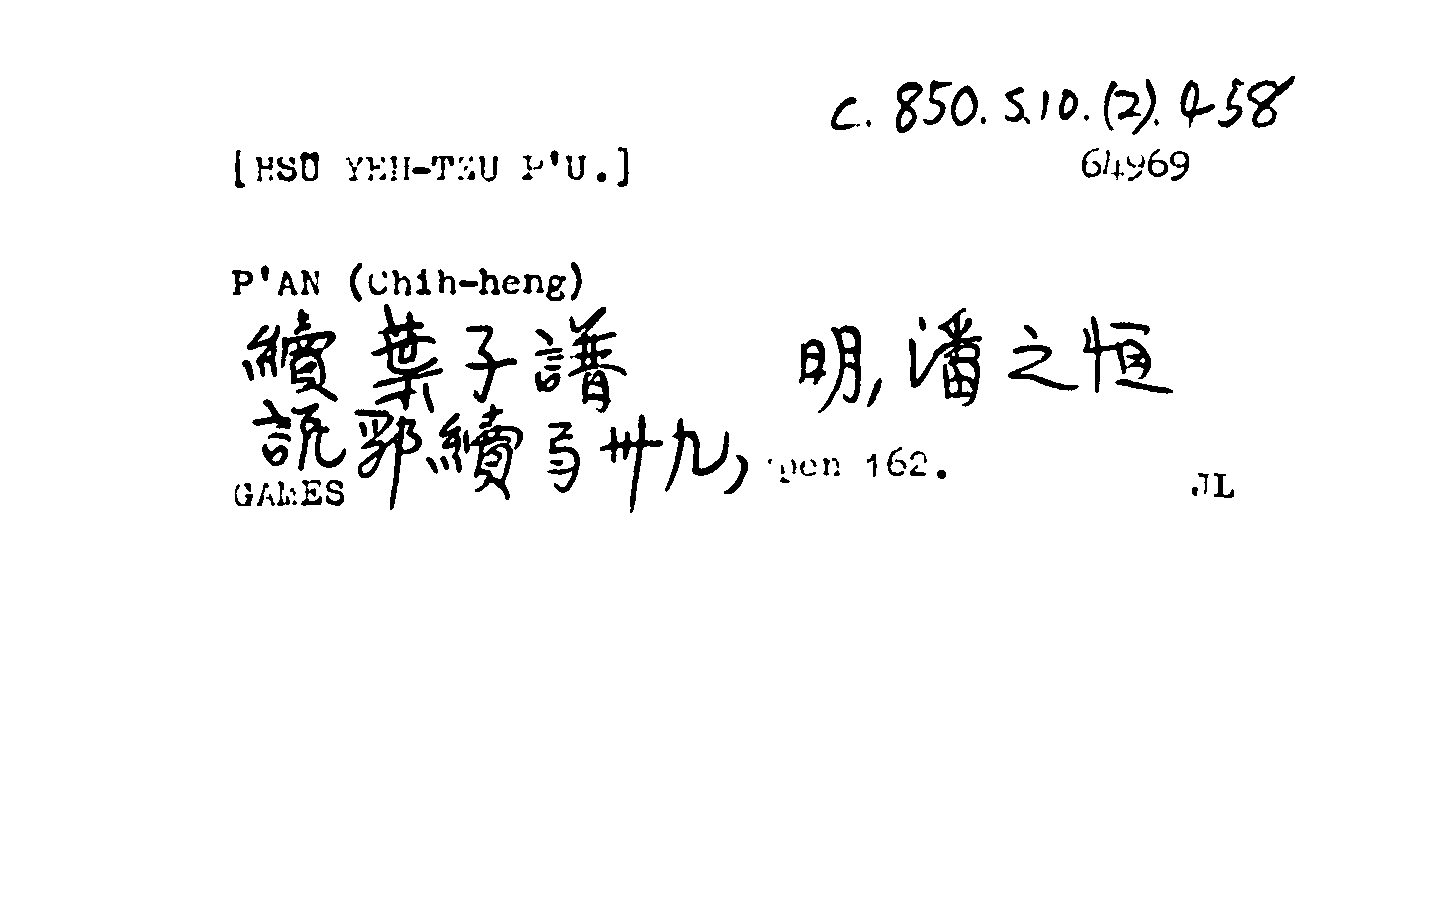 c. 850. s.10. (2). 458
64969
[HSÜ YEH-TZU P'U.]
P'AN (Chih-heng)
續葉子譜 明, 潘之恒
説郛續弓卌九, pen 162.
GAMES
JL